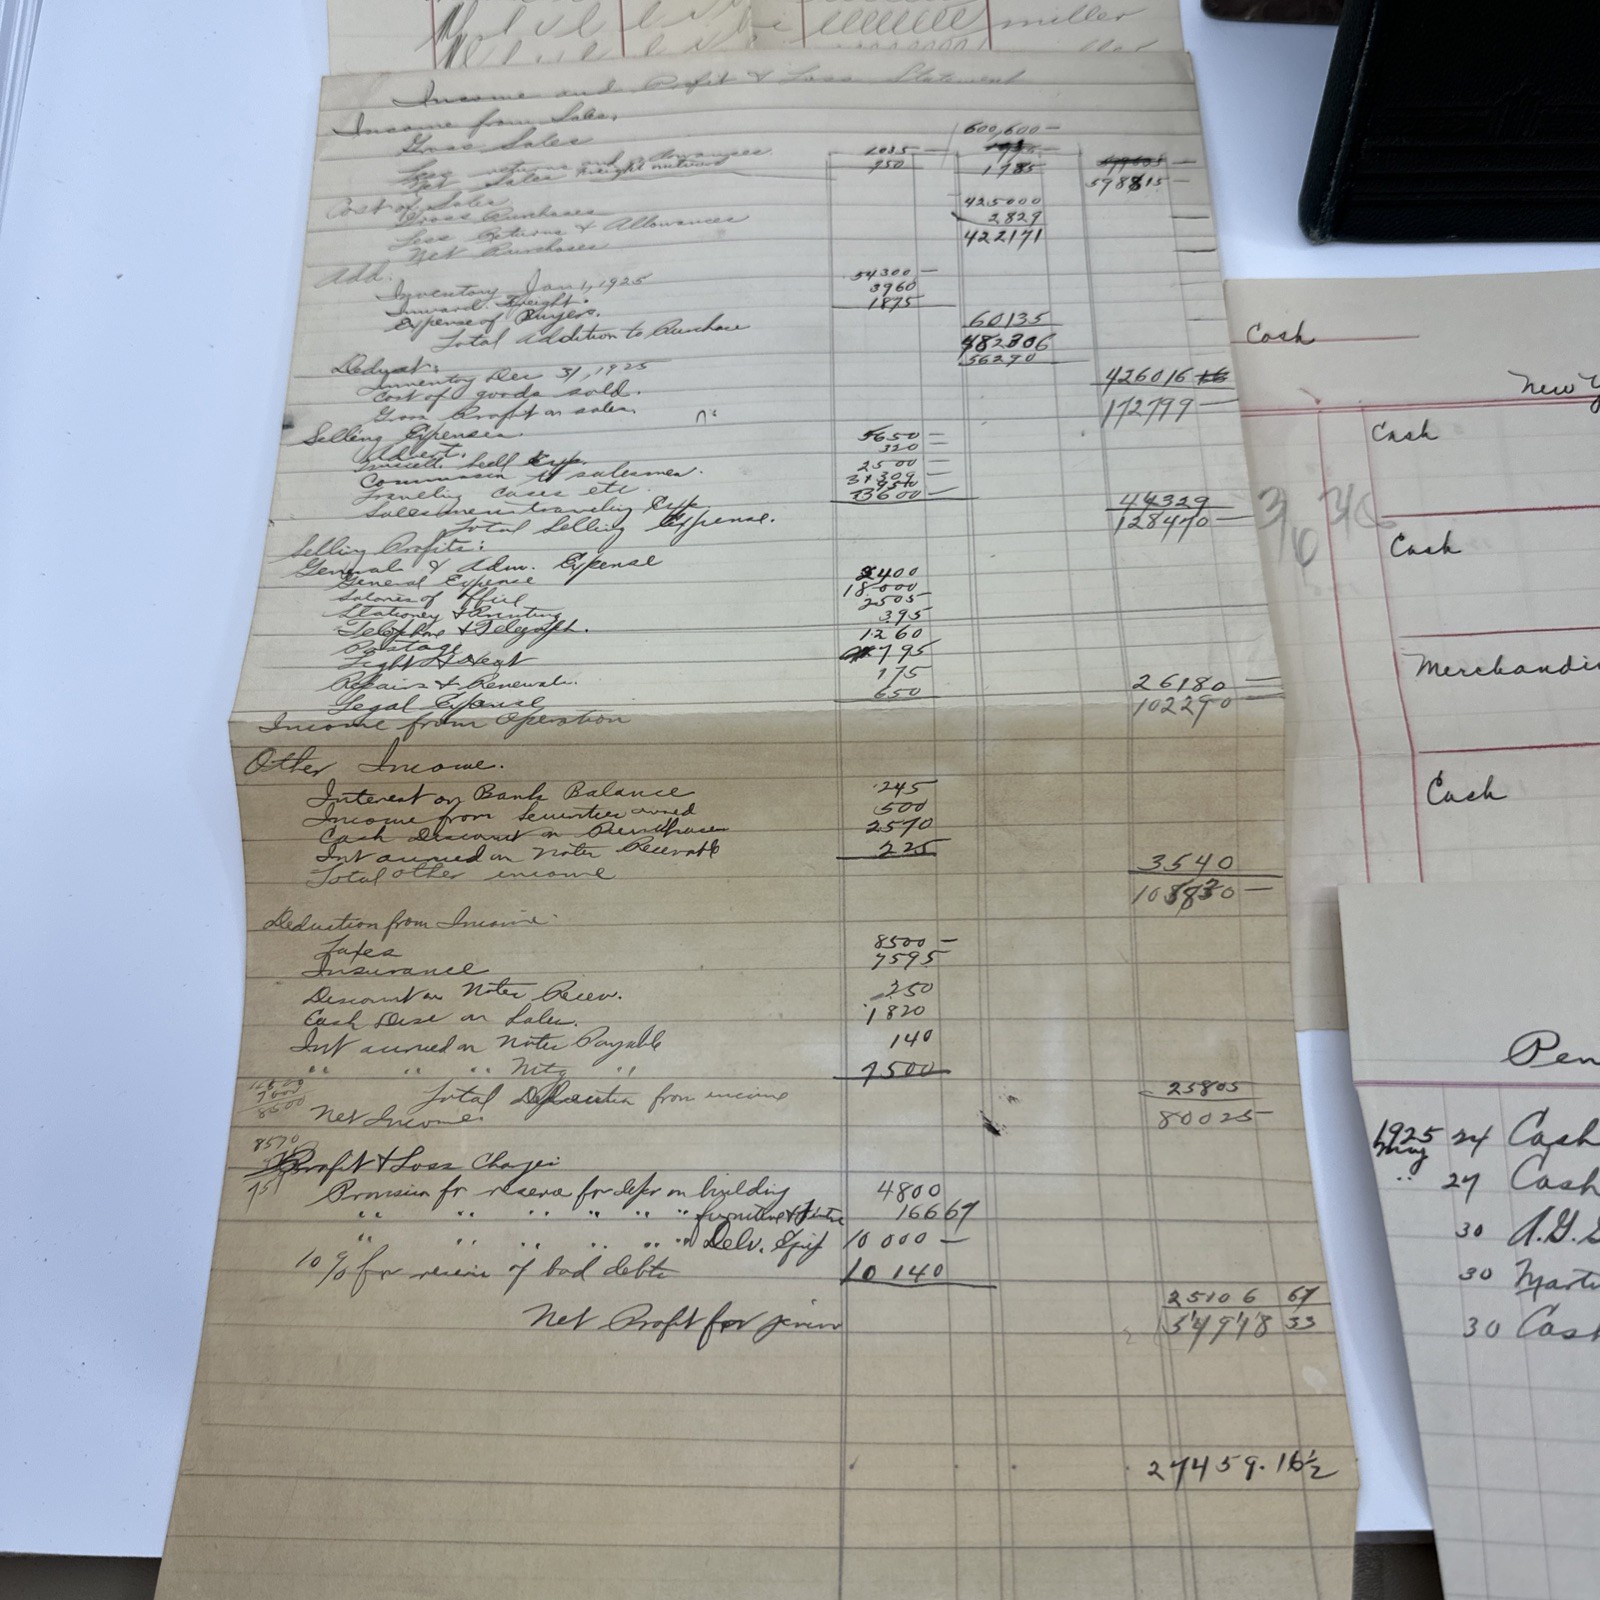 miller
Income and Profit & Loss Statement
Income from Sales,
Gross Sales 600,600 —
Less returns and allowances 1035 —
Net Sales freight outward 750 1785 598815 —
Cost of Sales
Gross Purchases 425000
Less Returns & Allowances 2829
Net Purchases 422171
Add.
Inventory Jan 1, 1925 54300 —
Inward Freight. 3960
Expense of Buyers. 1875
Total Addition to Purchase 60135
482306
Deduct: 56290
Inventory Dec 31, 1925
Cost of goods sold. 426016
Gross Profit on sales, 172799 —
Selling Expenses
Advert. 5650 —
Miscell. Sell Exp. 320
Commission to salesmen. 2500 —
Traveling cases etc
Salesmen traveling Exp
Total Selling Expense. 44329
Selling Profits: 128470 —
General & Adm. Expense
General Expense 2400
Salaries of Office 18000
Stationey & Printing 2505
Telephone & Telegraph. 395
Postage 1260
Light & Heat 795
Repairs & Renewals. 175
Legal Expense 650 26180 —
Income from Operation 102290 —
Other Income.
Interest on Bank Balance 245
Income from Securities owned 500
Cash Discount on Purchases 2570
Int accrued on Notes Receivable 225
Total other income 3540
105830 —
Deduction from Income:
Taxes 8500 —
Insurance 7595
Discount on Notes Receiv. 250
Cash Disc on Sales. 1820
Int accrued on Notes Payable 140
" " " Mtg " 7500
Total Deduction from income 25805
Net Income 80025
8570
Profit & Loss Charges
Provision for reserve for depr on building 4800
" " " " " " furniture & fixture 166 67
" " " " " " Delv. Equip 10 000 —
10 % for reserve of bad debts 10 140
25106 67
Net Profit for period 54918 33
27459.16½
Cash
New Y
Cash
Cash
Merchandi
Cash
Pen
1925
May 24 Cash
" 27 Cash
30 A.G.
30 Marti
30 Cash